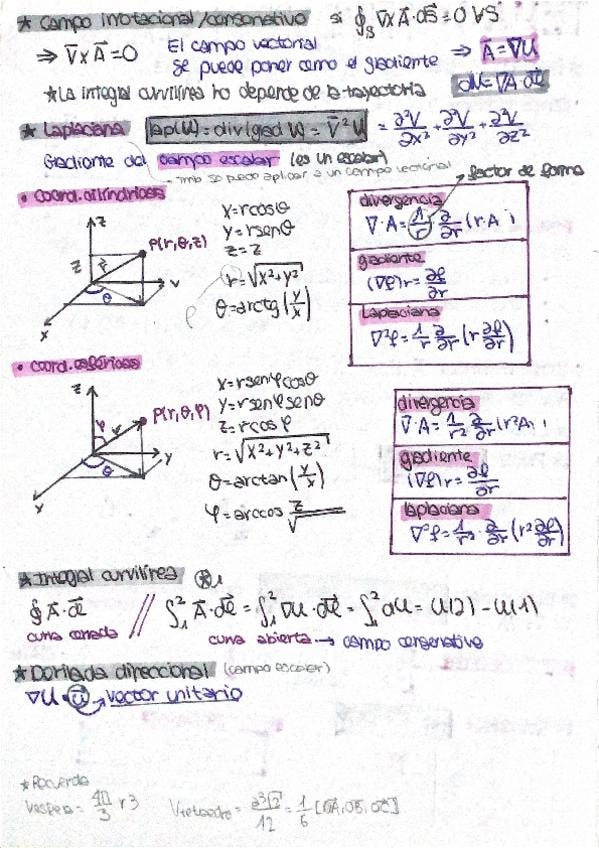 ★ Campo irrotacional/conservativo si ∮s ∇×A⃗·dS⃗=0 ∀S
⇒ ∇⃗×A⃗=0 El campo vectorial se puede poner como el gradiente ⇒ A⃗=∇U
★ La integral curvilínea no depende de la trayectoria dU=∇A·dl⃗
★ Laplaciana lap(U)=div(grad U)=∇⃗²U = ∂²V/∂x² + ∂²V/∂y² + ∂²V/∂z²
Gradiente del campo escalar (es un escalar)
tmb se puede aplicar a un campo vectorial
factor de forma
• Coord. cilíndricas
z
z r⃗ P(r,θ,z)
θ y
x
x=rcosθ
y=rsenθ
z=z
r=√x²+y²
ρ
θ=arctg(y/x)
divergencia
∇·A=1/r ∂/∂r (r·A )
gradiente
(∇φ)r=∂φ/∂r
Laplaciana
∇²φ=1/r ∂/∂r (r ∂φ/∂r)
• Coord. esféricas
z
φ P(r,θ,φ)
θ y
x
x=rsenφcosθ
y=rsenφsenθ
z=rcosφ
r=√x²+y²+z²
θ=arctan(y/x)
φ=arccos z/√
divergencia
∇·A=1/r² ∂/∂r (r²A
gradiente
(∇φ)r=∂φ/∂r
laplaciana
∇²φ=1/r²·∂/∂r (r² ∂φ/∂r)
★ Integral curvilínea
∮A⃗·dl⃗ // ∫₁² A⃗·dl⃗ = ∫₁² ∇U·dl⃗ = ∫₁² dU = U(2) - U(1)
curva cerrada curva abierta → campo conservativo
★ Derivada direccional (campo escalar)
∇U·u⃗ → vector unitario
★ Recuerda
Vesfera = 4π/3 r3 Vtetraedro = a³√2/12 = 1/6 [OA⃗,OB⃗,OC⃗]